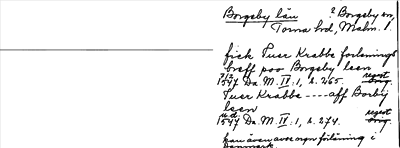 Borgeby län ? Borgeby sn,
Torna hrd, Malm. l.
fick Tuer Krabbe forlenings
breff poo Borgeby leen
7/2 1547 Da. M. IV: 1, s. 265. regest orig.
Tuer Krabbe ---- aff Borby
leen
u.d. 1547 Da. M. IV: 1, s. 274. regest orig.
kan även avse ngn förläning i
Danmark.